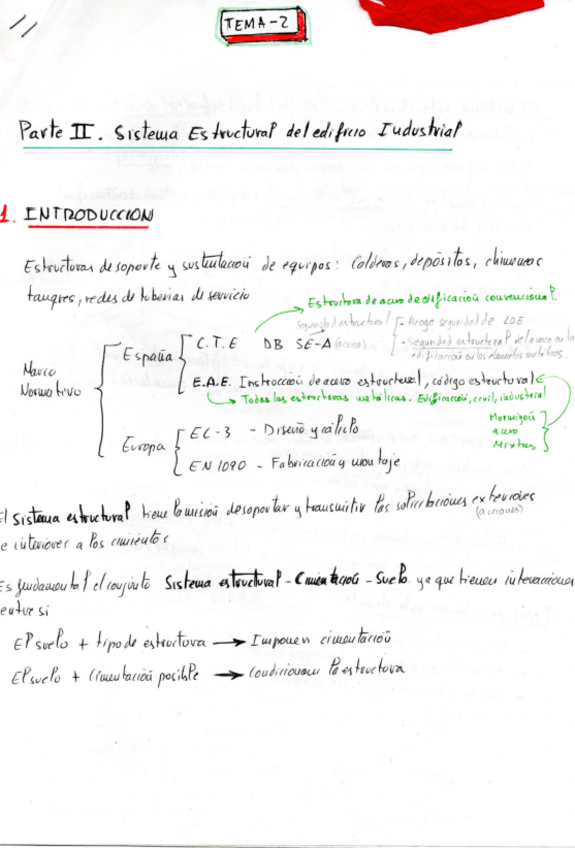 11
TEMA-2
Parte II. Sistema Estructural del edificio Industrial
1. INTRODUCCION
Estructuras de soporte y sustentación de equipos: Calderas, depósitos, chimeneas
tanques, redes de tuberias de servicio
Estructura de acero de edificación convencional.
Seguridad estructural - Acoge seguridad de LOE
C.T.E DB SE-A (acero) - Seguridad estructural del acero en la
edificación en los elementos metálicos
España
Marco
Normativo
E.A.E. Instrucción de acero estructural, código estructural
Todas las estructuras metálicas. Edificación, civil, industrial
Hormigón
acero
Mixtas
Europa
EC-3 - Diseño y cálculo
EN 1090 - Fabricación y montaje
El sistema estructural tiene la misión de soportar y transmitir las solicitaciones exteriores
(acciones)
e interiores a los cimientos
Es fundamental el conjunto Sistema estructural - Cimentación - Suelo. ya que tienen interacciones
entre si
El suelo + tipo de estructura → Imponen cimentación
El suelo + Cimentación posible → Condicionan la estructura